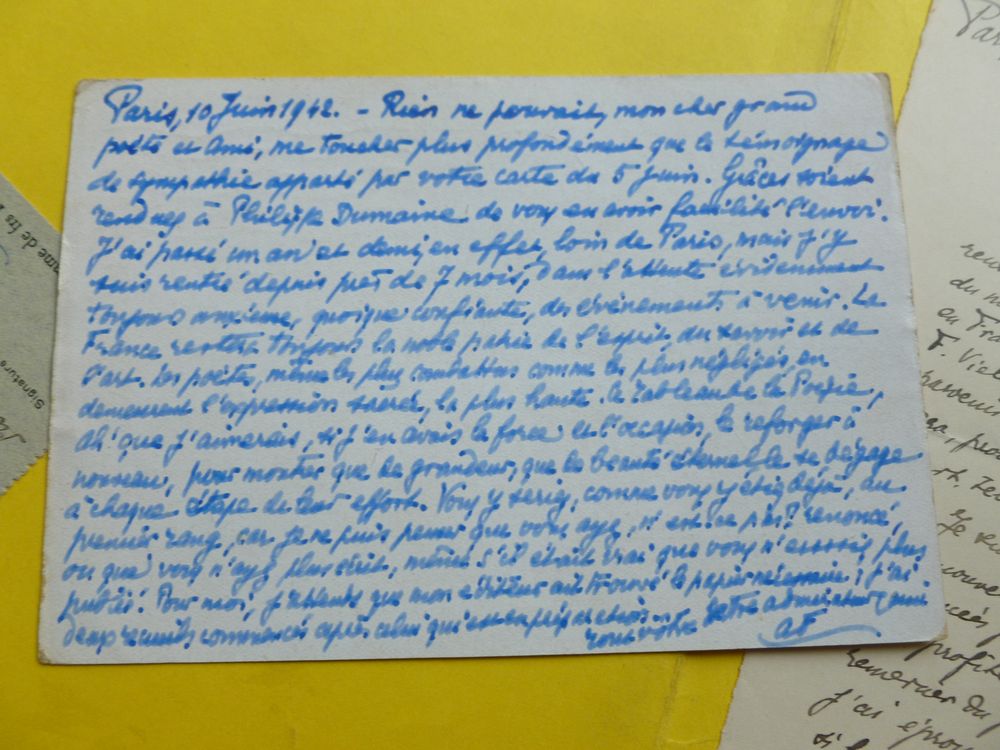 Paris, 10 Juin 1942. - Rien ne pouvait, mon cher grand
poète et ami, me toucher plus profondément que le témoignage
de sympathie apporté par votre carte du 5 juin. Grâces soient
rendues à Philippe Dumaine de vous en avoir facilité l'envoi.
J'ai passé un an et demi, en effet, loin de Paris, mais j'y
suis rentré depuis près de 7 mois, dans l'attente évidemment
toujours anxieuse, quoique confiante, des événements à venir. La
France restera toujours la noble patrie de l'esprit, du savoir et de
l'art. Les poètes, même les plus combattus comme les plus négligés, en
demeurent l'expression sacrée, la plus haute. Le tableau de la Poésie,
ah! que j'aimerais, si j'en avais la force et l'occasion, le reforger à
nouveau, pour montrer que la grandeur, que la beauté éternelle se dégage
à chaque étape de leur effort. Vous y seriez, comme vous y étiez déjà, au
premier rang, car je ne puis penser que vous ayez, n'est-ce pas? renoncé,
ou que vous n'ayez plus écrit, même s'il était vrai que vous n'eussiez plus
publié! Pour moi, j'attends que mon éditeur ait trouvé le papier nécessaire; j'ai
deux recueils commencés après celui qui est en préparation.
votre admirateur, ami
tout vôtre
AF
Signature
renc
du m
en Fra
F. Viel
parvenir
Je sui
profite
remercier du
J'ai épro